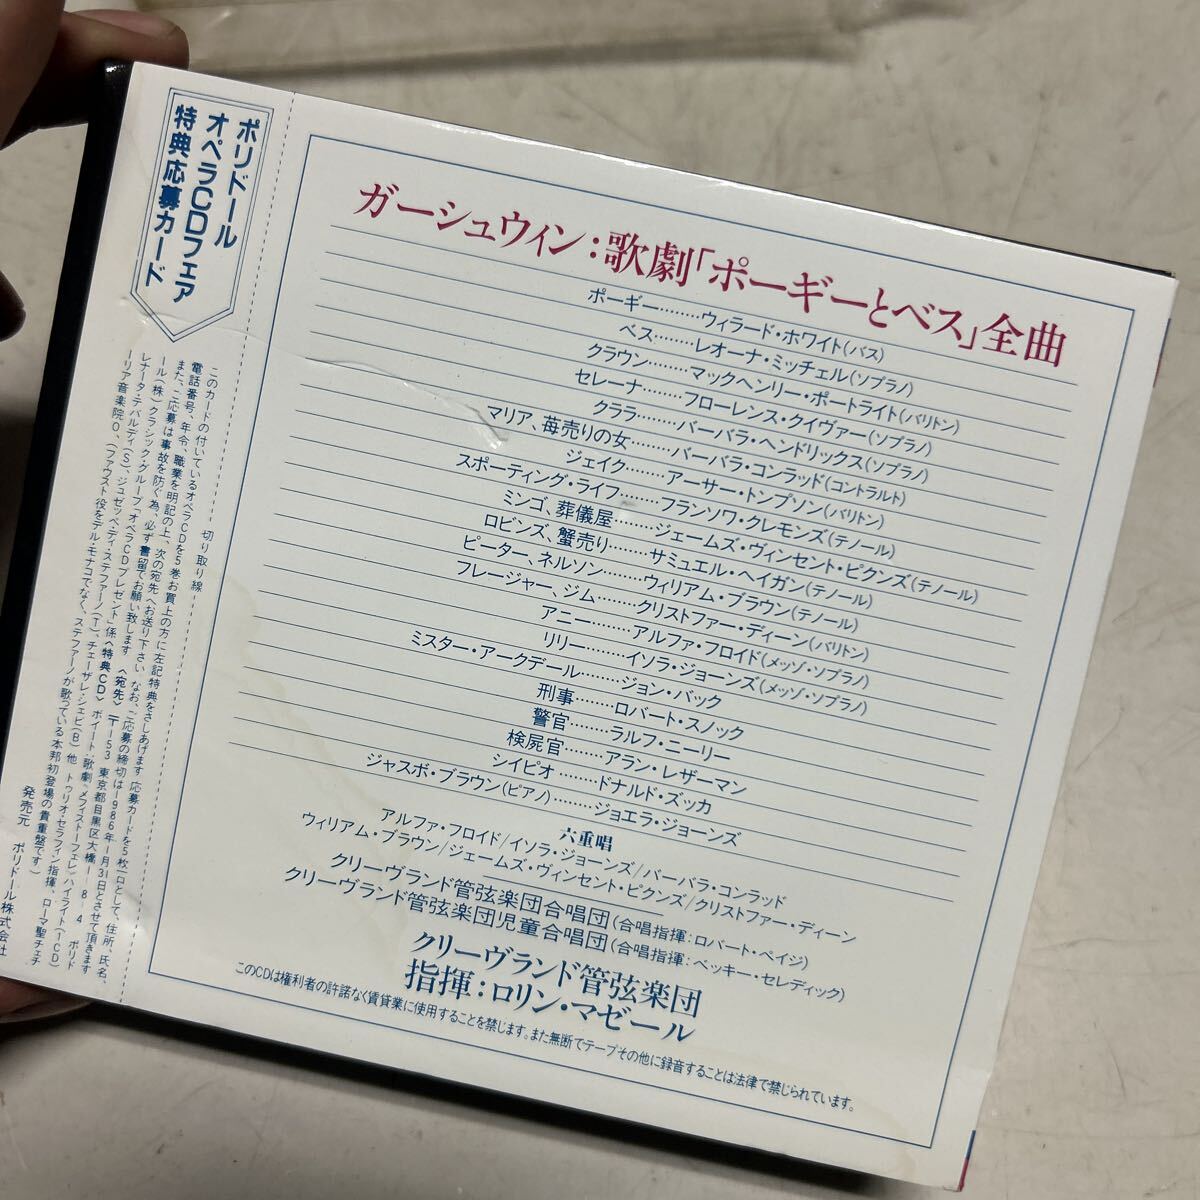 ポリドール
オペラCDフェア
特典応募カード
切り取り線
このカードの付いているオペラCDを5巻お買上の方に左記特典をさしあげます 応募カードを5枚一口として、住所、氏名、
電話番号、年令、職業を明記の上、次の宛先へお送り下さい なお、ご応募の締切は1986年1月31日とさせて頂きます
また、ご応募は事故を防ぐ為、必ず書留でお願い致します 〈宛先〉 〒153 東京都目黒区大橋1-8-4 ポリド
ール(株)クラシック・グループ、オペラCDプレゼント」係〈特典CD〉 ボイート:歌劇「メフィストーフェレ」ハイライト(1CD)
レナータ・テバルディ(S)、ジュゼッペ・ディ・ステファーノ(T)、チェーザレ・シエピ(B)他 トゥリオ・セラフィン指揮、ローマ聖チェチ
ーリア音楽院O、(ファウスト役をデル・モナコでなく、ステファーノが歌っている本邦初登場の貴重盤です)
発売元 ポリドール株式会社
ガーシュウィン:歌劇「ポーギーとベス」全曲
ポーギー………ウィラード・ホワイト(バス)
ベス………レオーナ・ミッチェル(ソプラノ)
クラウン………マックヘンリー・ボートライト(バリトン)
セレーナ………フローレンス・クイヴァー(ソプラノ)
クララ………バーバラ・ヘンドリックス(ソプラノ)
マリア、苺売りの女………バーバラ・コンラッド(コントラルト)
ジェイク………アーサー・トンプソン(バリトン)
スポーティング・ライフ………フランソワ・クレモンズ(テノール)
ミンゴ、葬儀屋………ジェームズ・ヴィンセント・ピクンズ(テノール)
ロビンズ、蟹売り………サミュエル・ヘイガン(テノール)
ピーター、ネルソン………ウィリアム・ブラウン(テノール)
フレージャー、ジム………クリストファー・ディーン(バリトン)
アニー………アルファ・フロイド(メッゾ・ソプラノ)
リリー………イソラ・ジョーンズ(メッゾ・ソプラノ)
ミスター・アークデール………ジョン・バック
刑事………ロバート・スノック
警官………ラルフ・ニーリー
検屍官………アラン・レザーマン
シイピオ………ドナルド・ズッカ
ジャスボ・ブラウン(ピアノ)………ジョエラ・ジョーンズ
六重唱
アルファ・フロイド/イソラ・ジョーンズ/バーバラ・コンラッド
ウィリアム・ブラウン/ジェームズ・ヴィンセント・ピクンズ/クリストファー・ディーン
クリーヴランド管弦楽団合唱団(合唱指揮:ロバート・ペイジ)
クリーヴランド管弦楽団児童合唱団(合唱指揮:ベッキー・セレディック)
クリーヴランド管弦楽団
指揮:ロリン・マゼール
このCDは権利者の許諾なく賃貸業に使用することを禁じます。また無断でテープその他に録音することは法律で禁じられています。